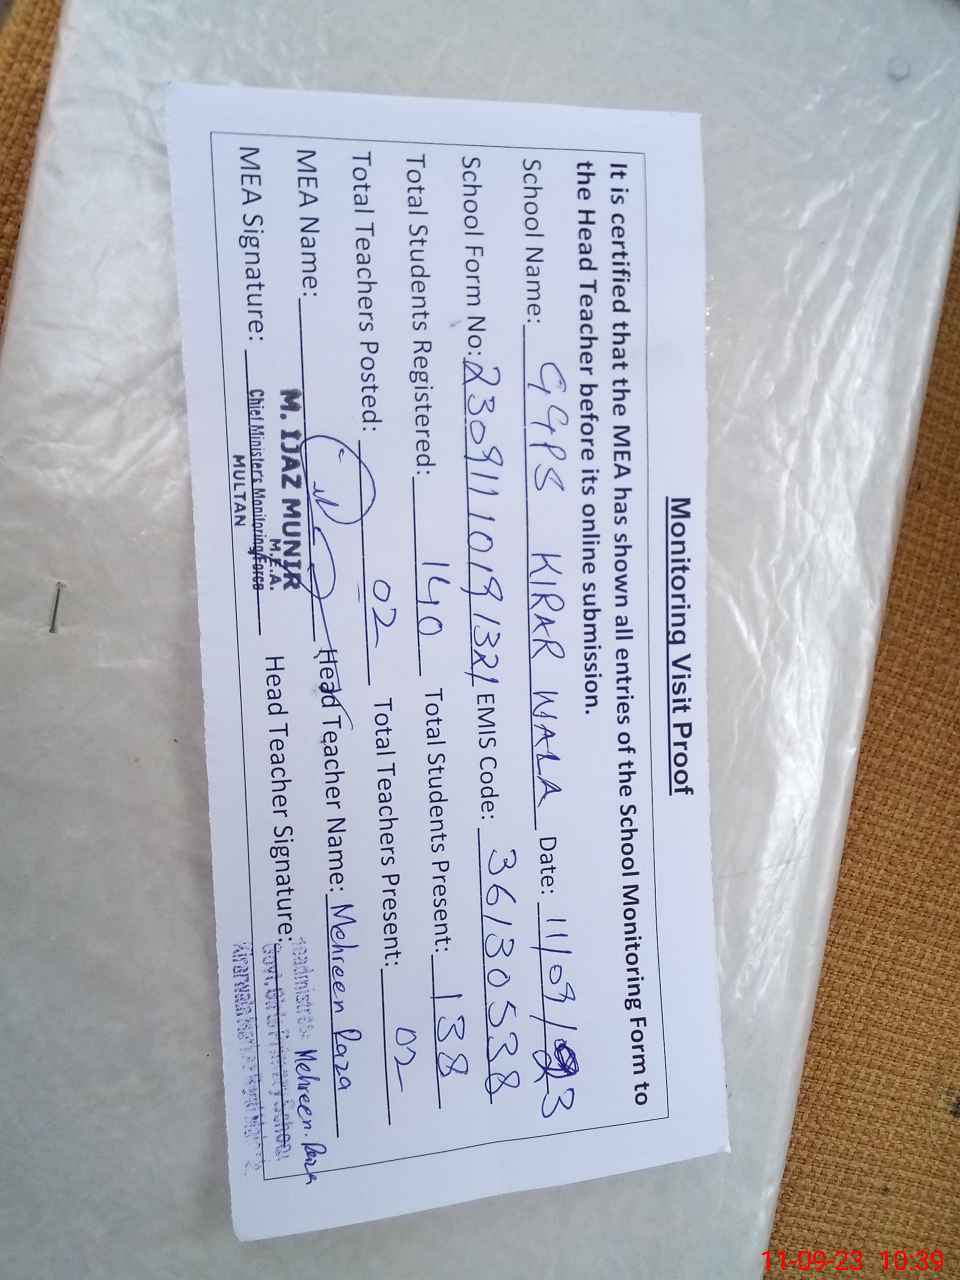 Monitoring Visit Proof
It is certified that the MEA has shown all entries of the School Monitoring Form to
the Head Teacher before its online submission.
School Name: GGPS KIRAR WALA Date: 11/09/23
School Form No: 23091110191321 EMIS Code: 36130538
Total Students Registered: 140 Total Students Present: 138
Total Teachers Posted: 02 Total Teachers Present: 02
MEA Name: Head Teacher Name: Mehreen Raza
M. IJAZ MUNIR
M.E.A.
MEA Signature: Chief Minister's Monitoring Force Head Teacher Signature: Mehreen Raza
MULTAN
Headmistress
Govt. Girls Primary School
11-09-23 10:39